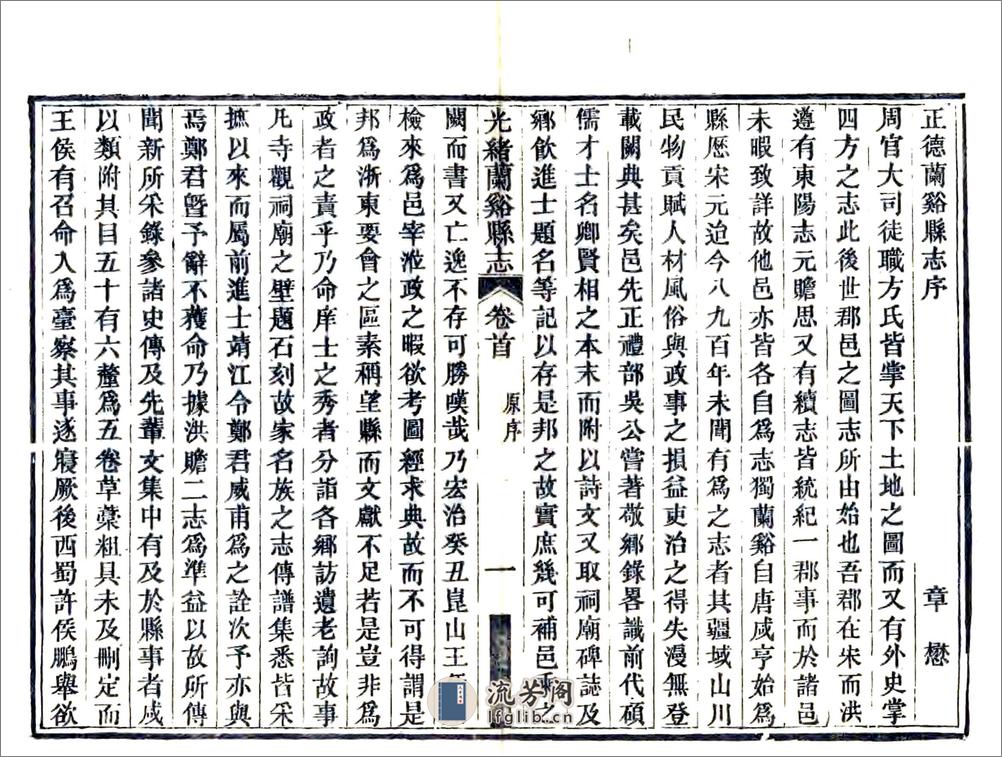 正德蘭谿縣志序　章懋
周官大司徒職方氏皆掌天下土地之圖而又有外史掌
四方之志此後世郡邑之圖志所由始也吾郡在宋而洪
遵有東陽志元贍思又有續志皆統紀一郡事而於諸邑
未暇致詳故他邑亦皆各自為志獨蘭谿自唐咸亨始為
縣歷宋元迨今八九百年未聞有為之志者其疆域山川
民物貢賦人材風俗與政事之損益吏治之得失漫無登
載闕典甚矣邑先正禮部吳公嘗著敬鄉錄畧識前代碩
儒才士名卿賢相之本末而附以詩文又取祠廟碑誌及
鄉飲進士題名等記以存是邦之故實庶幾可補邑乘之
光緒蘭谿縣志　卷首　原序　一
闕而書又亡逸不存可勝嘆哉乃宏治癸丑崑山王
檢來為邑宰涖政之暇欲考圖經求典故而不可得謂是
邦為浙東要會之區素稱望縣而文獻不足若是豈非為
政者之責乎乃命庠士之秀者分詣各鄉訪遺老詢故事
凡寺觀祠廟之壁題石刻故家名族之志傳譜集悉皆采
摭以來而屬前進士靖江令鄭君威甫為之詮次予亦與
焉鄭君暨予辭不獲命乃據洪贍二志為準益以故所傳
聞新所采錄參諸史傳及先輩文集中有及於縣事者咸
以類附其目五十有六釐為五卷草藁粗具未及刪定而
王侯有召命入為臺察其事遂寢厥後西蜀許侯鵬舉欲
流芳閣
lfglib.cn